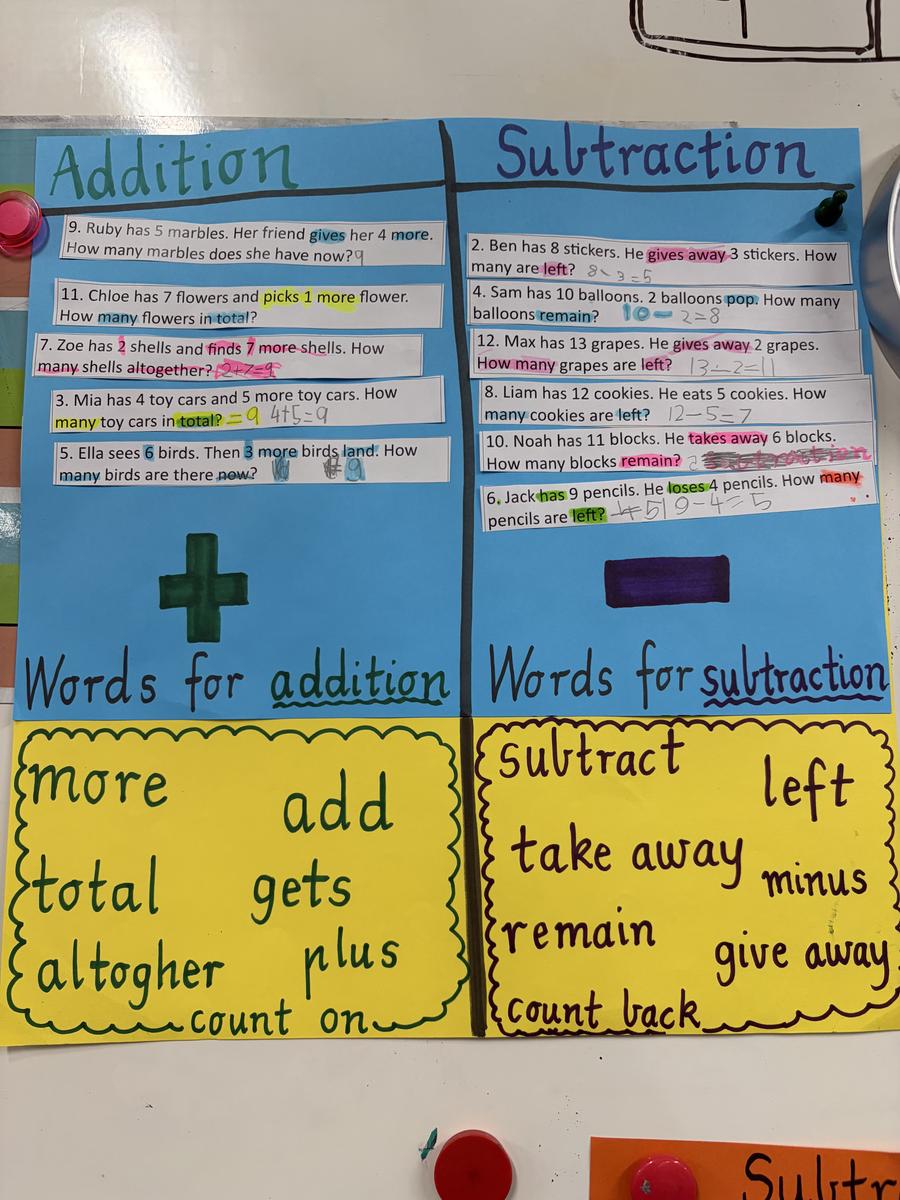 Addition
9. Ruby has 5 marbles. Her friend gives her 4 more.
How many marbles does she have now? 9
11. Chloe has 7 flowers and picks 1 more flower.
How many flowers in total?
7. Zoe has 2 shells and finds 7 more shells. How
many shells altogether? 2+7=9
3. Mia has 4 toy cars and 5 more toy cars. How
many toy cars in total? =9 4+5=9
5. Ella sees 6 birds. Then 3 more birds land. How
many birds are there now? 9
Words for addition
more
add
total
gets
altogher
plus
count on
Subtraction
2. Ben has 8 stickers. He gives away 3 stickers. How
many are left? 8-3=5
4. Sam has 10 balloons. 2 balloons pop. How many
balloons remain? 10-2=8
12. Max has 13 grapes. He gives away 2 grapes.
How many grapes are left? 13-2=11
8. Liam has 12 cookies. He eats 5 cookies. How
many cookies are left? 12-5=7
10. Noah has 11 blocks. He takes away 6 blocks.
How many blocks remain?
6. Jack has 9 pencils. He loses 4 pencils. How many
pencils are left? 9-4=5
Words for subtraction
subtract
left
take away
minus
remain
give away
count back
Subtr